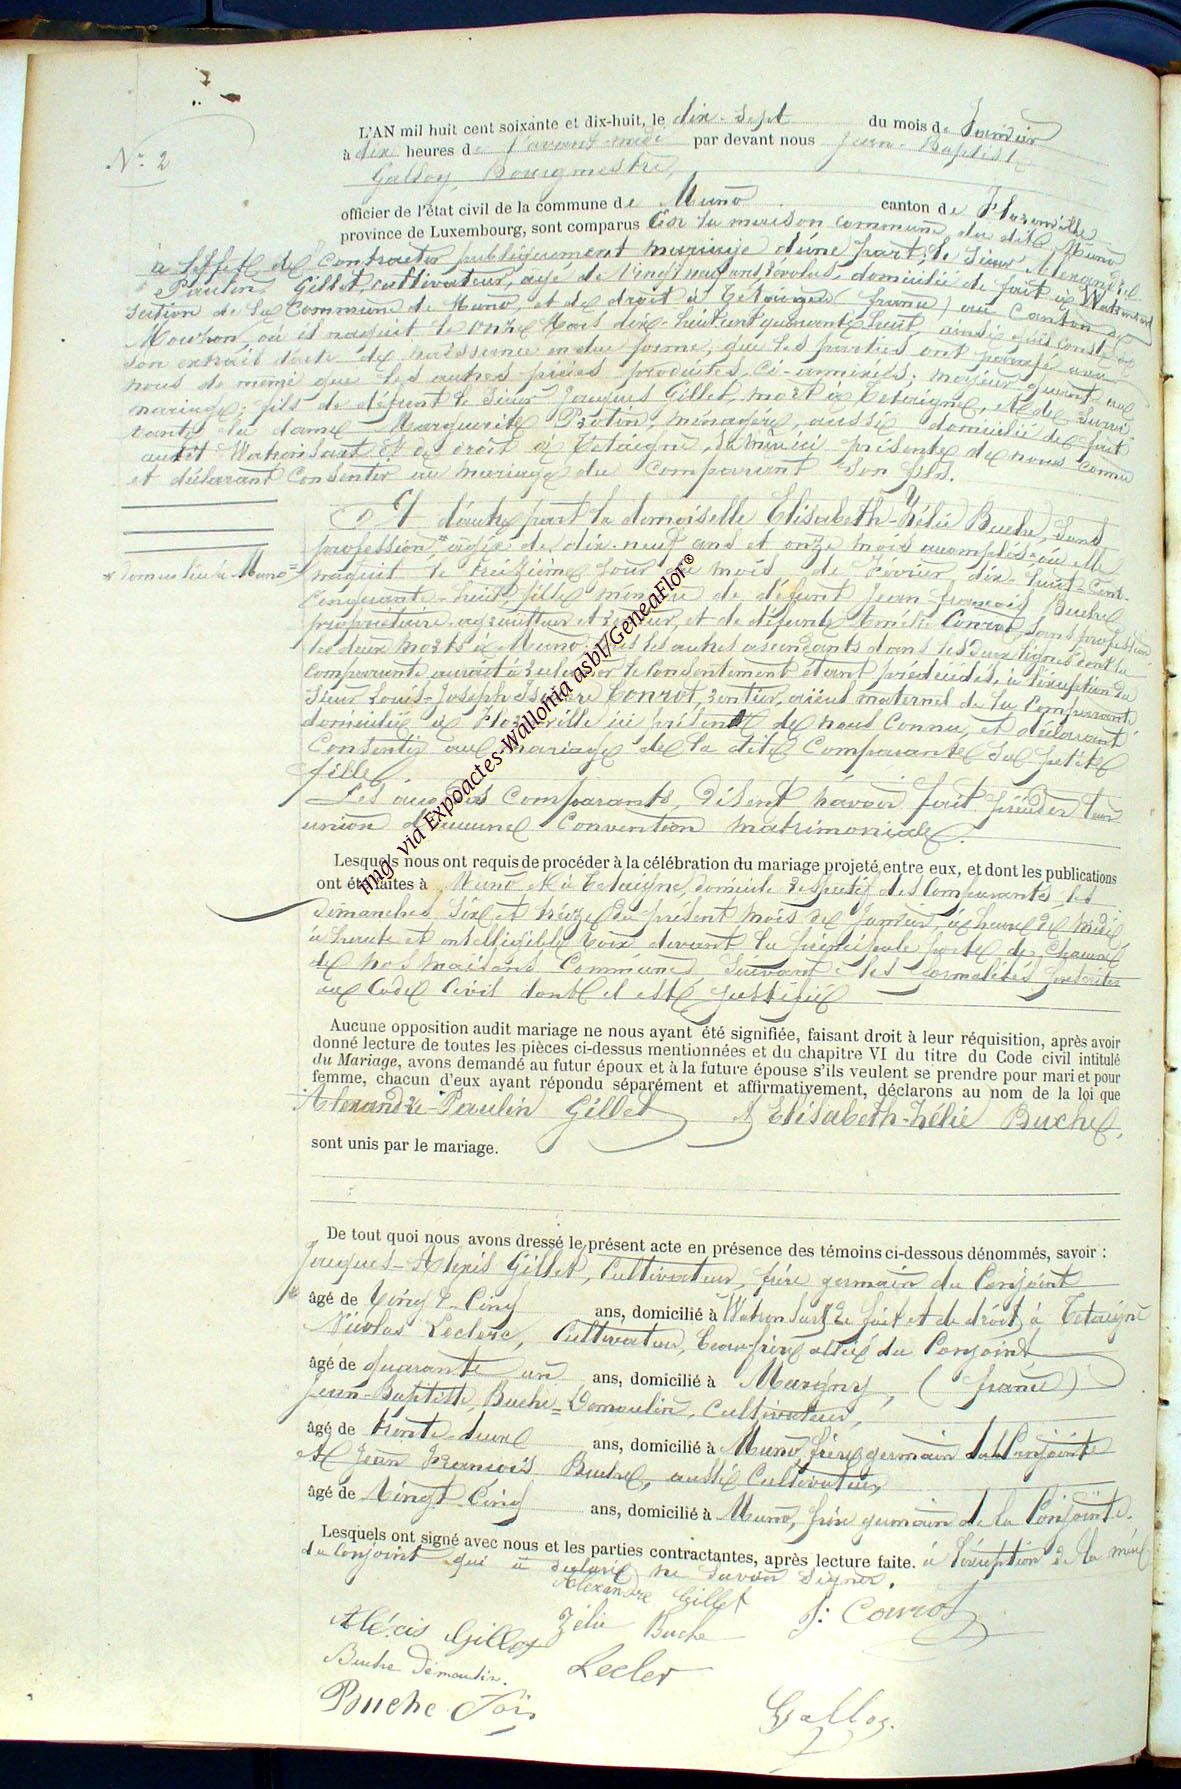 N° 2
L'AN mil huit cent soixante et dix-huit, le dix-sept du mois de Janvier
à dix heures de l'avant-midi par devant nous Jean-Baptiste
Galloy, Bourgmestre,
officier de l'état civil de la commune de Muno canton de Florenville
province de Luxembourg, sont comparus En la maison commune du dit Muno
à l'effet de Contracter publiquement mariage d'une part, le Sieur Alexandre
Paulin Gillet, cultivateur, agé de vingt neuf ans révolus, domicilié de fait à Watrinsart
section de la Commune de Muno, et de droit à Tétaigne (france) au Canton de
Mouzon, où il naquit le onze Mars dix-huit cent quarante huit, ainsi qu'il conste de
son extrait d'acte de naissance en due forme, que les parties ont paraphé avec
nous de même que les autres pièces produites, ci-annexées; majeur quant au
mariage; fils de défunt le Sieur Jacques Gillet, mort à Tétaigne, et de survi
vante la dame Marguerite Protin, ménagère, aussi domiciliée de fait
audit Watrinsart et de droit à Tétaigne, la même ici présente de nous connue
et déclarant Consentir au mariage du Comparant son fils.
Et d'autre part la demoiselle Elisabeth-Zélie Buche, sans
profession * agée de dix-neuf ans et onze mois accomplis où elle
* domiciliée à Muno =
naquit le treizième jour du mois de février dix-huit-Cent-
Cinquante-huit, fille mineure de défunt Jean-François Buche
propriétaire-agriculteur et rentier, et de défunte Conrot, sans profession
les deux morts à Muno; tous les autres ascendants dans les deux lignes dont la
Comparante aurait à réclamer le Consentement étant prédécédés, à l'exception du
Sieur Louis-Joseph Isidore Conrot, rentier, aïeul maternel de la Comparante
domicilié à Florenville ici présent de nous Connu, et déclarant
Consentir au mariage de la dite Comparante sa petite
fille.
Les Comparants, Disent n'avoir fait précéder leur
union d'aucune Convention matrimoniale.
Lesquels nous ont requis de procéder à la célébration du mariage projeté entre eux, et dont les publications
ont été faites à Muno et à Tétaigne, domicile respectif des Comparants, les
dimanches six et treize du présent mois de Janvier, à l'heure de midi
à haute et intelligible voix devant la principale porte de chacune
de nos maisons Communes, suivant les formalités prescrites
au Code Civil dont il est justifié
Aucune opposition audit mariage ne nous ayant été signifiée, faisant droit à leur réquisition, après avoir
donné lecture de toutes les pièces ci-dessus mentionnées et du chapitre VI du titre du Code civil intitulé
du Mariage, avons demandé au futur époux et à la future épouse s'ils veulent se prendre pour mari et pour
femme, chacun d'eux ayant répondu séparément et affirmativement, déclarons au nom de la loi que
Alexandre-Paulin Gillet & Elisabeth-Zélie Buche,
sont unis par le mariage.
De tout quoi nous avons dressé le présent acte en présence des témoins ci-dessous dénommés, savoir :
Jacques-Alexis Gillet, Cultivateur, frère germain du Conjoint
âgé de Vingt-Cinq ans, domicilié à Watrinsart de fait et de droit à Tétaigne
Nicolas Leclerc, Cultivateur, beau-frère allié du Conjoint
âgé de quarante un ans, domicilié à Mairy, (france)
Jean-Baptiste, Buche=Demoulin, Cultivateur,
âgé de trente-deux ans, domicilié à Muno, frère germain de la Conjointe
Et Jean François Buche, aussi Cultivateur,
âgé de Vingt-Cinq ans, domicilié à Muno, frère germain de la Conjointe.
Lesquels ont signé avec nous et les parties contractantes, après lecture faite. à l'exception de la mère
du Conjoint qui a déclaré ne savoir signer.
Alexandre Gillet
Aléxis Gillet Zélie Buche J: Conrot
Buche Demoulin. Lecler
Buche Fois Galloy.
img via Expoactes-Wallonia asbl/GeneaFlor®